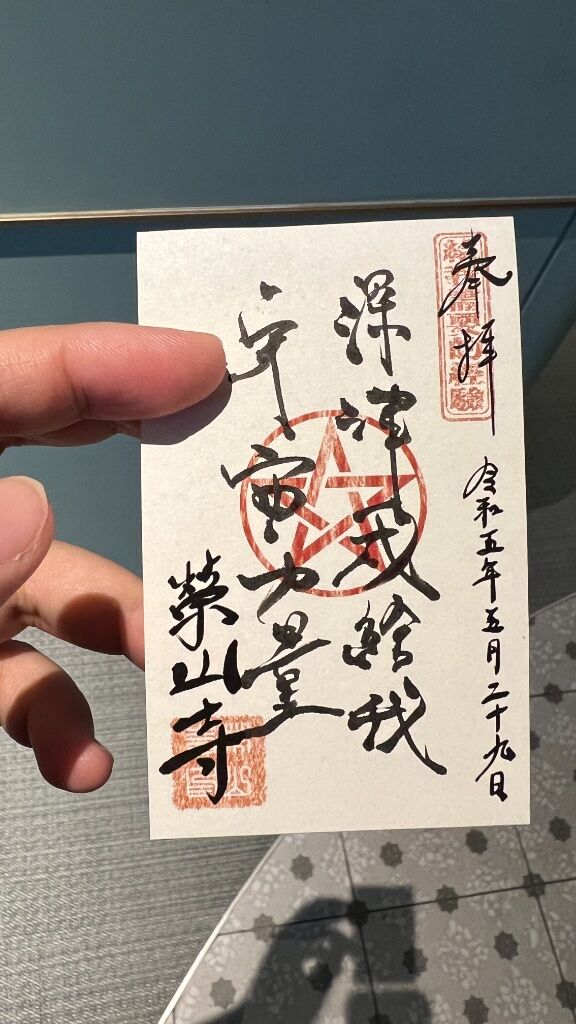 奉拝
令和五年五月二十九日
深津成給我
宇宙力量
榮山寺